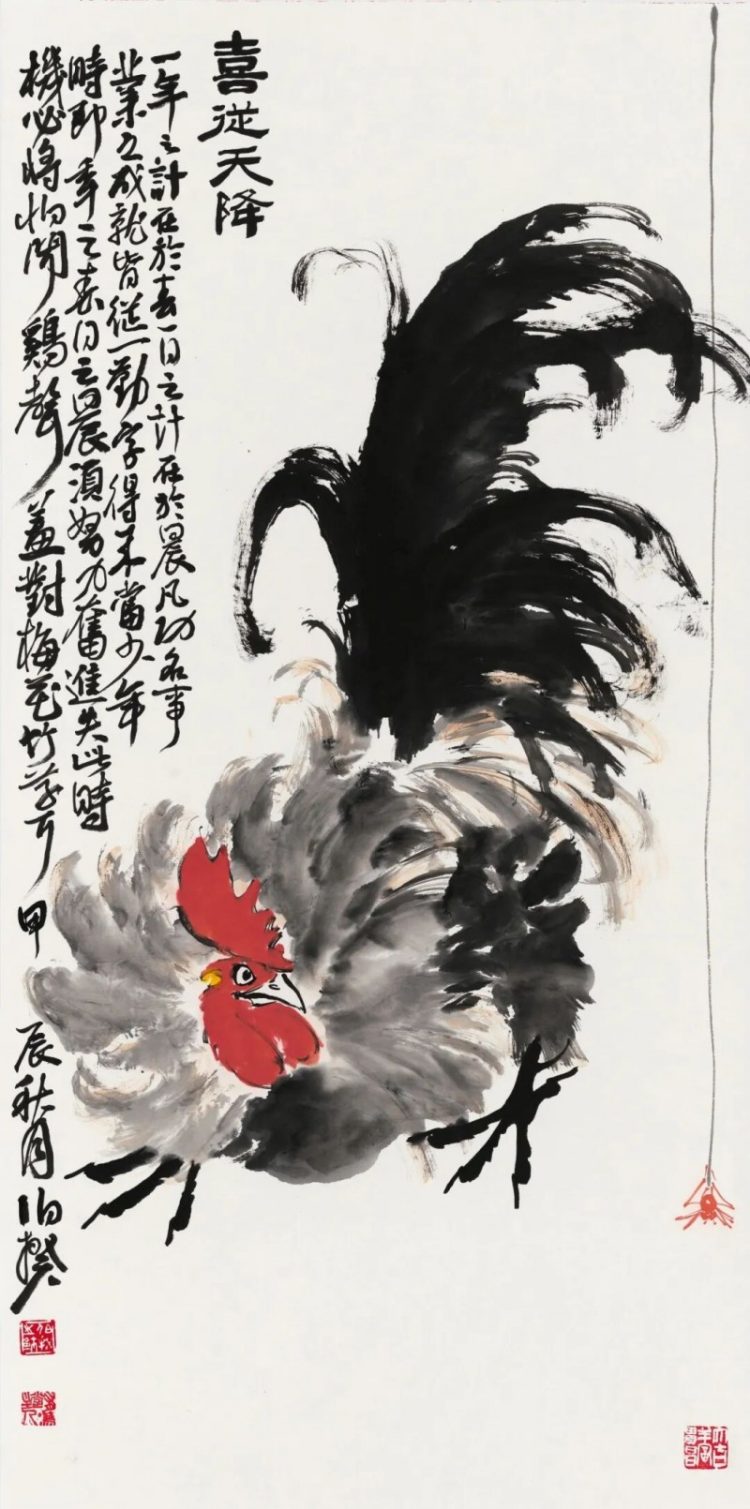 喜從天降
一年之計在於春一日之計在於晨凡功名事
業之成就皆從一勤字得來當少年
時即年之春日之晨須努力奮進失此時
機必將怕聞鷄聲羞對梅花竹葉耳甲
辰秋月伯揆